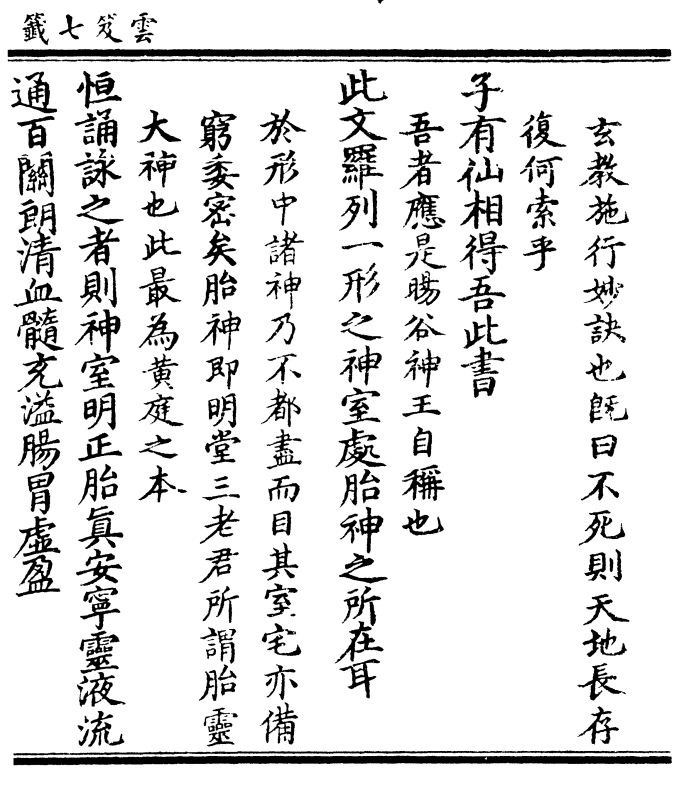 雲笈七籤
玄教施行妙訣也旣曰不死則天地長存
復何索乎
子有仙相得吾此書
吾者應是暘谷神王自稱也
此文羅列一形之神室處胎神之所在耳
於形中諸神乃不都盡而目其室宅亦備
窮委密矣胎神即明堂三老君所謂胎靈
大神也此最為黃庭之本
恒誦詠之者則神室明正胎眞安寧靈液流
通百關朗清血髓充溢腸胃虛盈